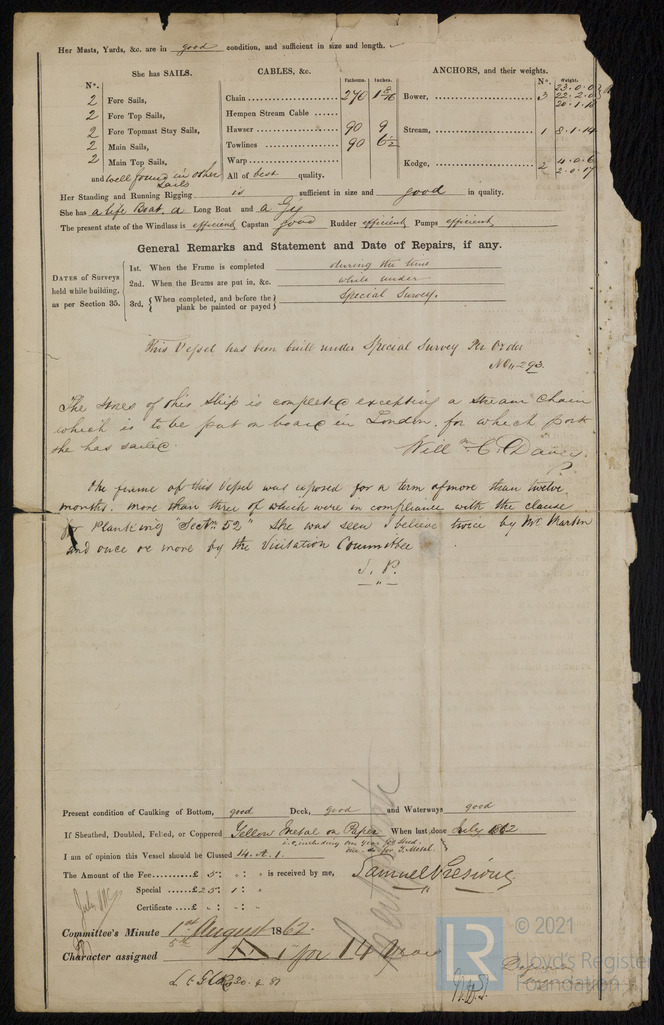 Her Masts, Yards, &c. are in good condition, and sufficient in size and length.
She has SAILS.
CABLES, &c.
ANCHORS, and their weights.
No.
Fathoms. Inches.
No. Weight.
2 Fore Sails,
2 Fore Top Sails,
2 Fore Topmast Stay Sails,
2 Main Sails,
2 Main Top Sails,
and well found in other Sails
Chain 270 1 8/16
Hempen Stream Cable
Hawser 90 9
Towlines 90 6 1/2
Warp
All of best quality.
Bower, 3 23.0.0
22.2.0
20.1.18
Stream, 1 8.1.14
Kedge, 2 4.0.6
2.0.17
Her Standing and Running Rigging is sufficient in size and good in quality.
She has a life Boat, a Long Boat and a Gy
The present state of the Windlass is efficient Capstan good Rudder efficient Pumps efficient
General Remarks and Statement and Date of Repairs, if any.
DATES of Surveys held while building, as per Section 35.
1st. When the Frame is completed during the time
2nd. When the Beams are put in, &c. while under
3rd. { When completed, and before the plank be painted or payed } Special Survey.
This Vessel has been built under Special Survey Per Order
No. 293.
The stores of this Ship is complete excepting a stream chain
which is to be put on board in London, for which port
she has sailed.
Will m C.
The frame of this Vessel was exposed for a term of more than twelve
months. more than three of which were in compliance with the clause
Planking "Sectn 52" She was seen I believe twice by Mr. Martin
and once or more by the Visitation Committee
S. P.
Present condition of Caulking of Bottom, good Deck, good and Waterways good
If Sheathed, Doubled, Felted, or Coppered Yellow Metal on Paper When last done July 1862
i.e. including one year for
I am of opinion this Vessel should be Classed 14. A. 1.
The Amount of the Fee £ 5 : " : " is received by me,
Samuel
Special £ 25 : 1 : "
Certificate £ " : " : "
Committee's Minute 1st August 1862.
5th
Character assigned A 1 for 14 Years
LR
© 2021
Lloyd's Register
Foundation